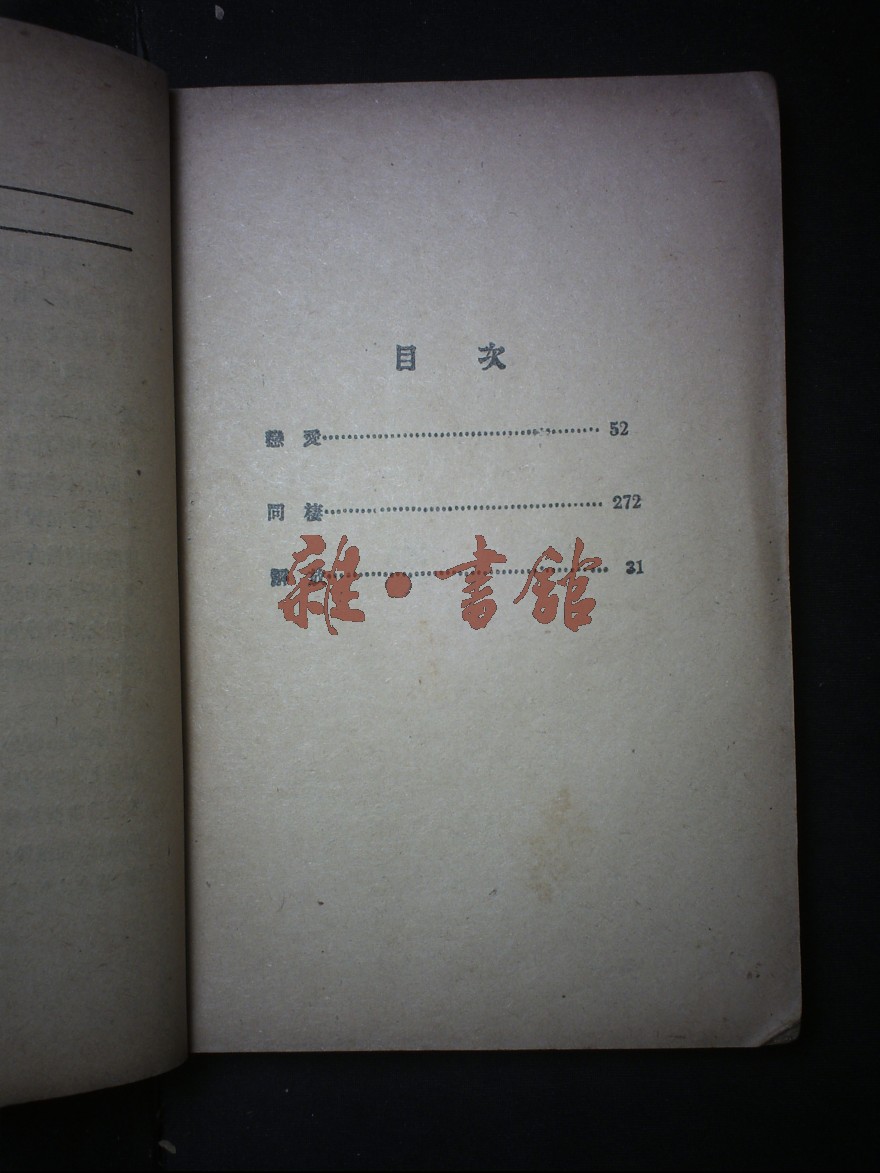 目 次
戀 愛 52
同 棲 272
解 放 31
雜·書館